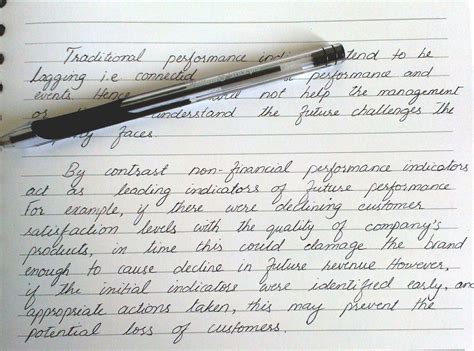 Traditional performance tend to be
lagging i.e connected performance and
events. Hence not help the management
understand the future challenges the
faces.
By contrast non-financial performance indicators
act as leading indicators of future performance
For example, if there were declining customer
satisfaction levels with the quality of company's
products, in time this could damage the brand
enough to cause decline in future revenue However,
if the initial indicators were identified early, and
appropriate actions taken, this may prevent the
potential loss of customers.